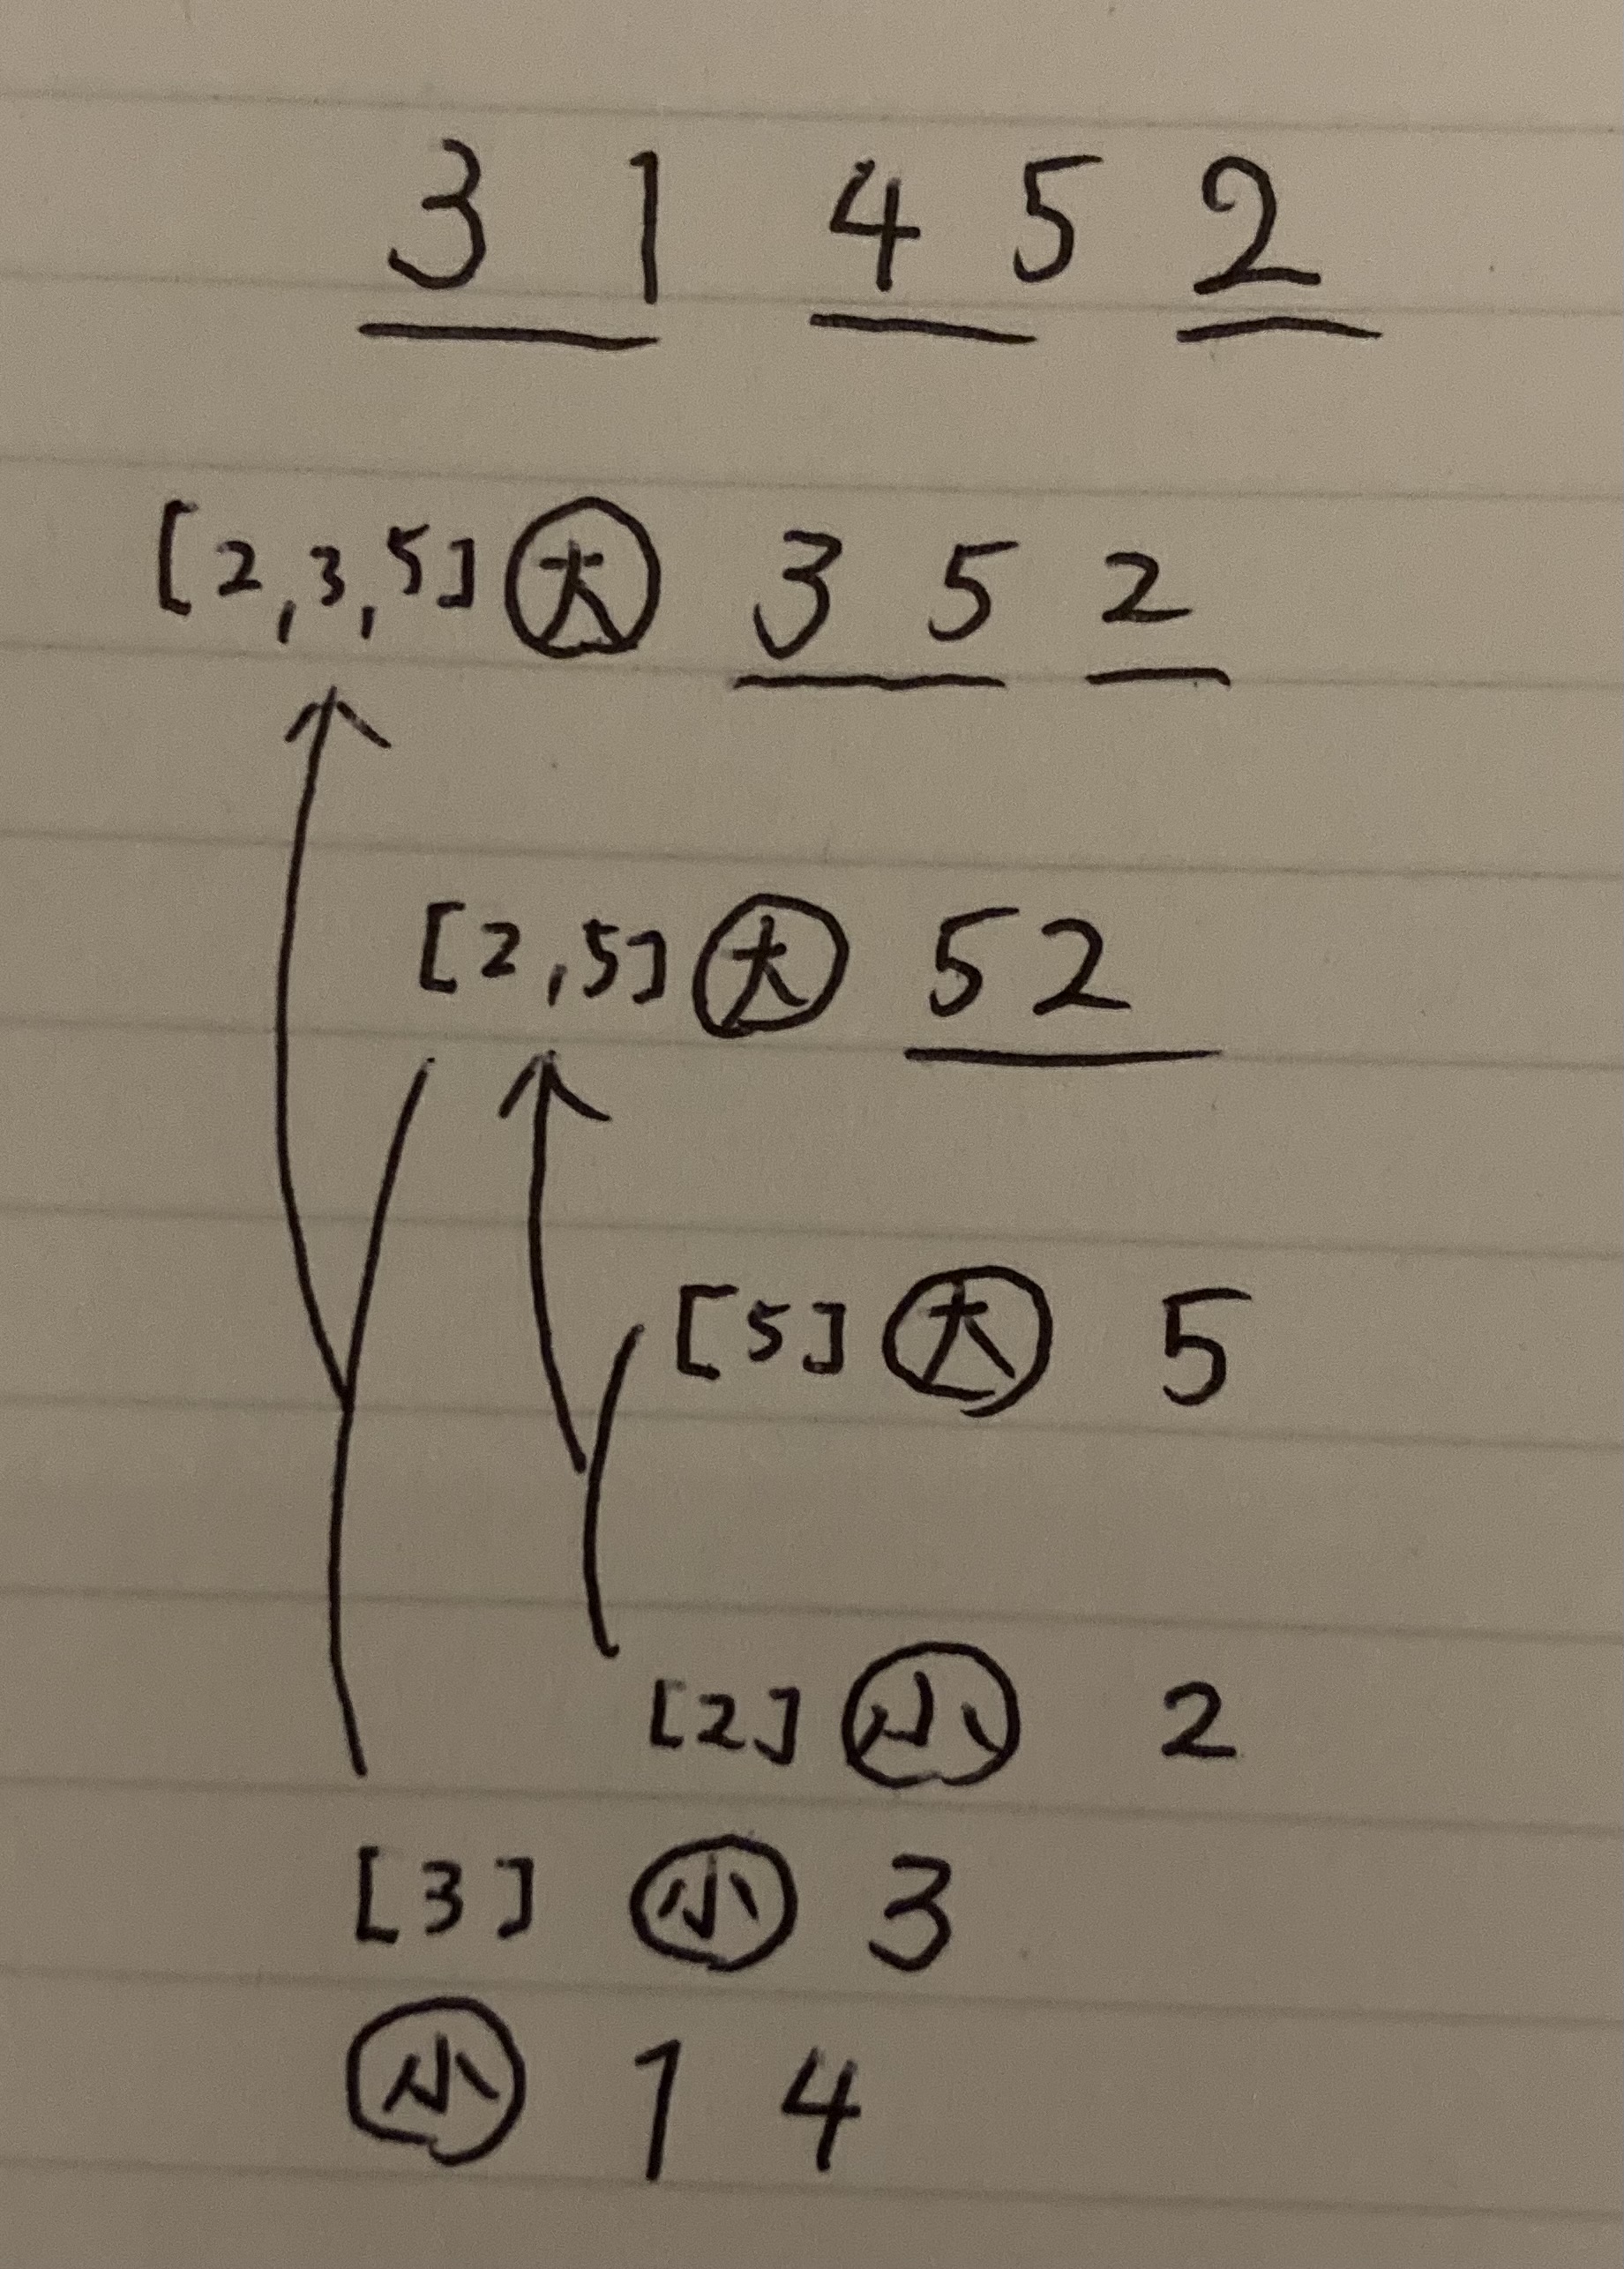 3 1 4 5 2
[2,3,5] 大 3 5 2
[2,5] 大 5 2
[5] 大 5
[2] 小 2
[3] 小 3
小 1 4